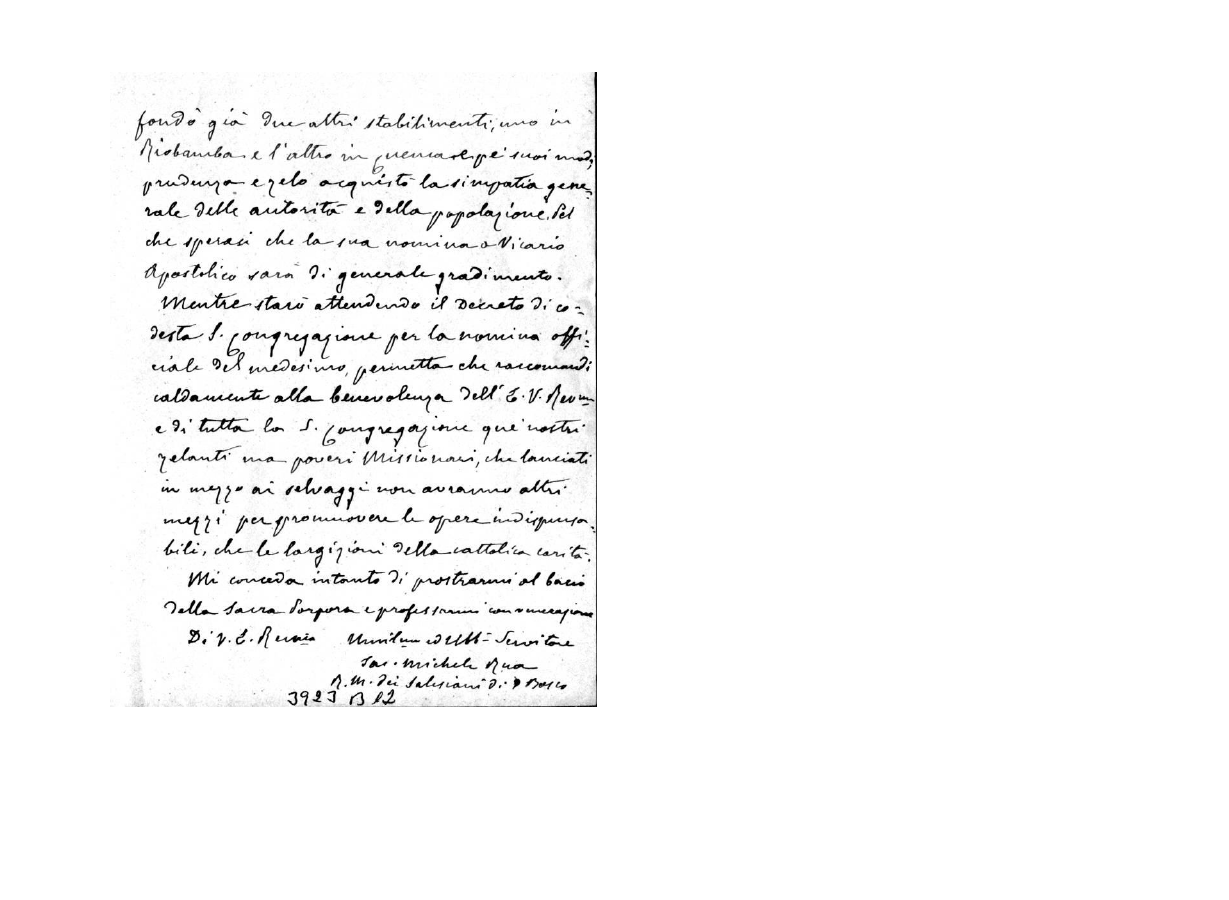 fondò già due altri stabilimenti, uno in
Riobamba e l'altro in Cuenca e pe' suoi modi,
prudenza e zelo acquistò la simpatia gene-
rale delle autorità e della popolazione. Sel
che sperasi che la sua nomina a Vicario
Apostolico sarà di generale gradimento.
Mentre starò attendendo il Decreto di co-
desta S. Congregazione per la nomina offi-
ciale del medesimo, permetta che raccomandi
caldamente alla benevolenza dell'E. V. Revma
e di tutta la S. Congregazione que' nostri
zelanti ma poveri Missionari, che lanciati
in mezzo ai selvaggi non avranno altri
mezzi per promuovere le opere indispensa-
bili, che le largizioni della cattolica carità.
Mi conceda intanto di prostrarmi al bacio
della Sacra Porpora e professarmi con venerazione
Di V. E. Revma Umilmo ed Obb. Servitore
Sac. Michele Rua
R. M. dei Salesiani di D Bosco
3923 B 12